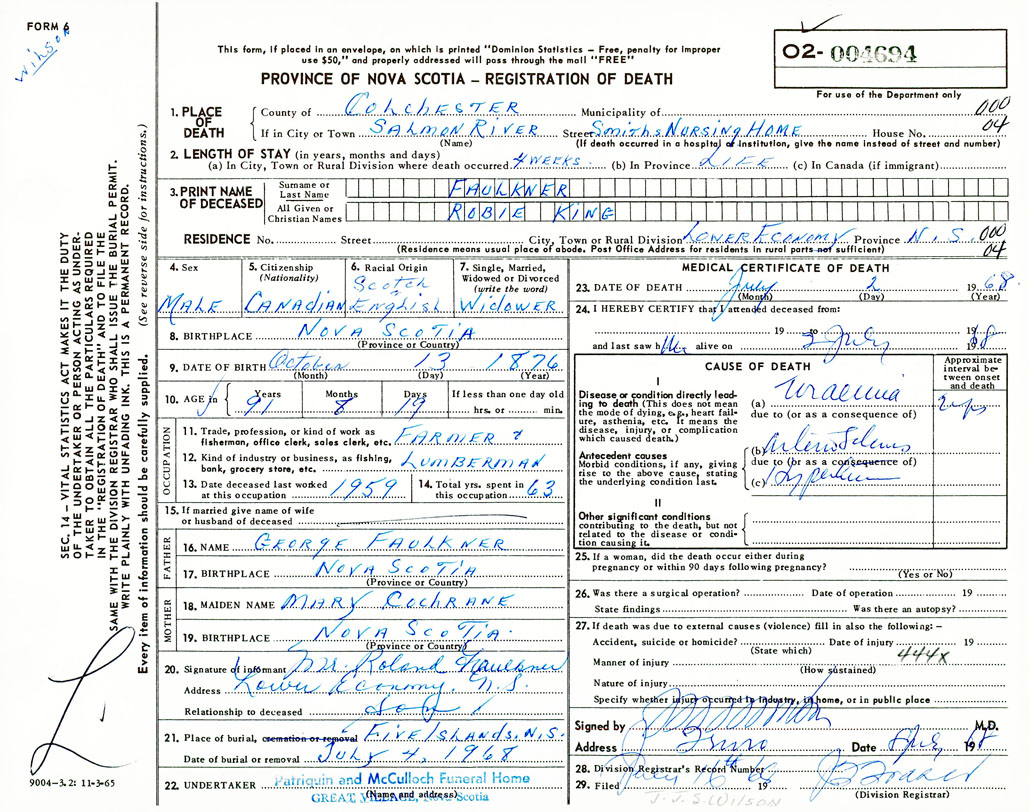 FORM 6
Wilson
O2- 004694
For use of the Department only
This form, if placed in an envelope, on which is printed "Dominion Statistics – Free, penalty for improper
use $50," and properly addressed will pass through the mail "FREE"
PROVINCE OF NOVA SCOTIA – REGISTRATION OF DEATH
SEC. 14 – VITAL STATISTICS ACT MAKES IT THE DUTY
OF THE UNDERTAKER OR PERSON ACTING AS UNDER-
TAKER TO OBTAIN ALL THE PARTICULARS REQUIRED
IN THE "REGISTRATION OF DEATH" AND TO FILE THE
SAME WITH THE DIVISION REGISTRAR WHO SHALL ISSUE THE BURIAL PERMIT.
WRITE PLAINLY WITH UNFADING INK. THIS IS A PERMANENT RECORD.
Every item of information should be carefully supplied. (See reverse side for instructions.)
1. PLACE OF DEATH
County of COLCHESTER Municipality of 000
If in City or Town SALMON RIVER Street Smiths NURSING HOME House No. 04
(Name) (If death occurred in a hospital or institution, give the name instead of street and number)
2. LENGTH OF STAY (in years, months and days)
(a) In City, Town or Rural Division where death occurred 4 WEEKS. (b) In Province LIFE (c) In Canada (if immigrant)
3. PRINT NAME OF DECEASED
Surname or Last Name FAULKNER
All Given or Christian Names ROBIE KING
RESIDENCE No. Street City, Town or Rural Division LOWER ECONOMY Province N.S. 000
(Residence means usual place of abode. Post Office Address for residents in rural parts not sufficient) 04
4. Sex MALE
5. Citizenship (Nationality) CANADIAN
6. Racial Origin Scotch English
7. Single, Married, Widowed or Divorced (write the word) WIDOWER
8. BIRTHPLACE NOVA SCOTIA
(Province or Country)
9. DATE OF BIRTH October 13 1876
(Month) (Day) (Year)
10. AGE in Years 91 Months 8 Days 19 If less than one day old hrs. or min.
OCCUPATION
11. Trade, profession, or kind of work as fisherman, office clerk, sales clerk, etc. FARMER &
12. Kind of industry or business, as fishing, bank, grocery store, etc. LUMBERMAN
13. Date deceased last worked at this occupation 1959
14. Total yrs. spent in this occupation 63
15. If married give name of wife or husband of deceased
FATHER
16. NAME GEORGE FAULKNER
17. BIRTHPLACE NOVA SCOTIA
(Province or Country)
MOTHER
18. MAIDEN NAME MARY COCHRANE
19. BIRTHPLACE NOVA SCOTIA.
(Province or Country)
20. Signature of informant Mr. Roland Faulkner
Address Lower Economy, N.S.
Relationship to deceased Son
21. Place of burial, cremation or removal FIVE ISLANDS, N.S.
Date of burial or removal JULY 4, 1968
22. UNDERTAKER Patriquin and McCulloch Funeral Home
(Name and address)
GREAT VILLAGE, Nova Scotia
9004–3.2: 11-3-65
MEDICAL CERTIFICATE OF DEATH
23. DATE OF DEATH July 2 1968.
(Month) (Day) (Year)
24. I HEREBY CERTIFY that I attended deceased from:
19 to 2 July 1968
and last saw him alive on 19
CAUSE OF DEATH
Approximate interval between onset and death
I
Disease or condition directly leading to death (This does not mean the mode of dying, e.g., heart failure, asthenia, etc. It means the disease, injury, or complication which caused death.)
(a) Uraemia
due to (or as a consequence of)
Antecedent causes
Morbid conditions, if any, giving rise to the above cause, stating the underlying condition last.
(b)
due to (or as a consequence of)
(c)
II
Other significant conditions contributing to the death, but not related to the disease or condition causing it.
25. If a woman, did the death occur either during pregnancy or within 90 days following pregnancy?
(Yes or No)
26. Was there a surgical operation? Date of operation 19
State findings Was there an autopsy?
27. If death was due to external causes (violence) fill in also the following: –
Accident, suicide or homicide? Date of injury 19
(State which) 444x
Manner of injury
(How sustained)
Nature of injury
Specify whether injury occurred in industry, in home, or in public place
Signed by M.D.
Address Truro Date 8 July 1968
28. Division Registrar's Record Number
29. Filed July 16th 19
(Division Registrar)
J.J.S. WILSON